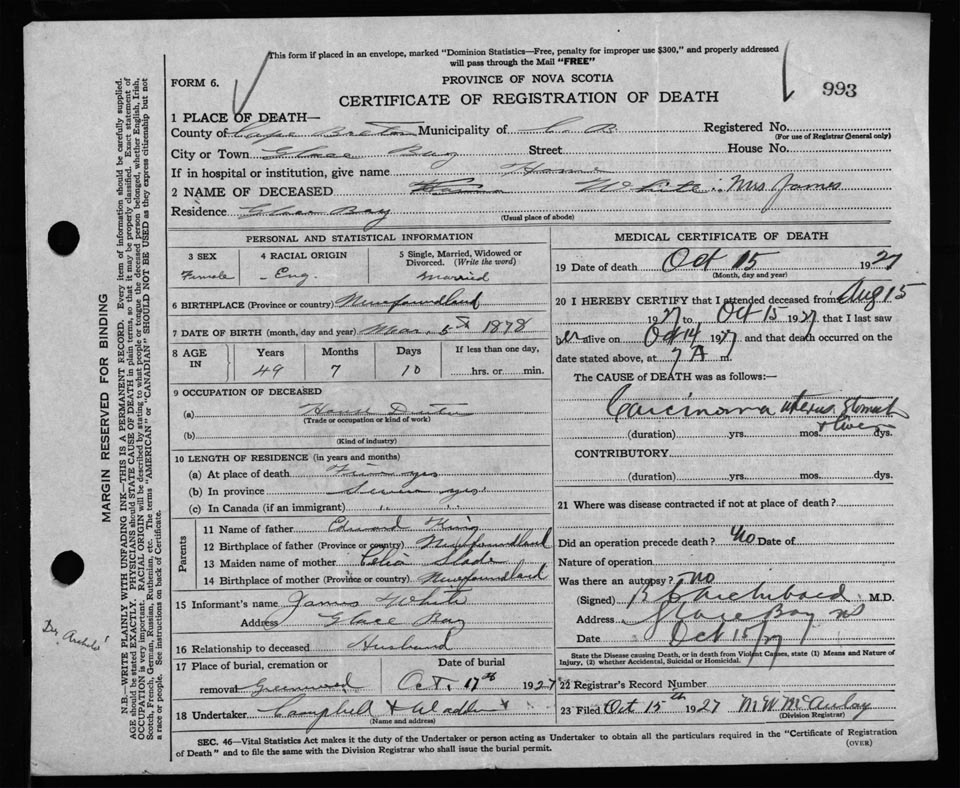 This form if placed in an envelope, marked "Dominion Statistics—Free, penalty for improper use $300," and properly addressed
will pass through the Mail "FREE"
FORM 6.
PROVINCE OF NOVA SCOTIA
993
CERTIFICATE OF REGISTRATION OF DEATH
1 PLACE OF DEATH—
County of Cape Breton Municipality of C. B. Registered No.
(For use of Registrar General only)
City or Town Glace Bay Street House No.
If in hospital or institution, give name Home
2 NAME OF DECEASED White Mrs James
Residence Glace Bay
(Usual place of abode)
PERSONAL AND STATISTICAL INFORMATION
3 SEX 4 RACIAL ORIGIN 5 Single, Married, Widowed or Divorced. (Write the word)
Female Eng. Married
6 BIRTHPLACE (Province or country) Newfoundland
7 DATE OF BIRTH (month, day and year) Mar. 5th 1878
8 AGE IN Years Months Days If less than one day,
49 7 10 hrs. or min.
9 OCCUPATION OF DECEASED
(a) House Duties
(Trade or occupation or kind of work)
(b)
(Kind of industry)
10 LENGTH OF RESIDENCE (in years and months)
(a) At place of death yrs
(b) In province Seven yrs.
(c) In Canada (if an immigrant) " "
Parents
11 Name of father Edward King
12 Birthplace of father (Province or country) Newfoundland
13 Maiden name of mother Celia Slade
14 Birthplace of mother (Province or country) Newfoundland
15 Informant's name James White
Address Glace Bay
16 Relationship to deceased Husband
17 Place of burial, cremation or removal Greenwood
Date of burial Oct. 17th 1927
18 Undertaker Campbell &
(Name and address)
MEDICAL CERTIFICATE OF DEATH
19 Date of death Oct 15 1927
(Month, day and year)
20 I HEREBY CERTIFY that I attended deceased from Aug 15
1927 to Oct 15 1927 that I last saw
her alive on Oct 14 1927, and that death occurred on the
date stated above, at 7 A m.
The CAUSE of DEATH was as follows:
Carcinoma uterus, Stomach
& Liver
(duration) yrs. mos. dys.
CONTRIBUTORY
(duration) yrs. mos. dys.
21 Where was disease contracted if not at place of death?
Did an operation precede death? No Date of
Nature of operation
Was there an autopsy? no
(Signed) Archibald M.D.
Address Glace Bay NS
Date Oct 15/27
State the Disease causing Death, or in death from Violent Causes, state (1) Means and Nature of
Injury, (2) whether Accidental, Suicidal or Homicidal.
22 Registrar's Record Number
23 Filed Oct 15th 1927 M W McAulay
(Division Registrar)
SEC. 46—Vital Statistics Act makes it the duty of the Undertaker or person acting as Undertaker to obtain all the particulars required in the "Certificate of Registration
of Death" and to file the same with the Division Registrar who shall issue the burial permit.
(OVER)
MARGIN RESERVED FOR BINDING
N.B.—WRITE PLAINLY WITH UNFADING INK—THIS IS A PERMANENT RECORD. Every item of information should be carefully supplied.
AGE should be stated EXACTLY. PHYSICIANS should STATE CAUSE OF DEATH in plain terms, so that it may be properly classified. Exact statement of
OCCUPATION is very important. RACIAL ORIGIN will be described by stating to what people or tongue the deceased person belonged, whether English, Irish,
Scotch, French, German, Russian, Ruthenian, etc. The terms "AMERICAN" or "CANADIAN" SHOULD NOT BE USED as they express citizenship but not
a race or people. See instructions on back of Certificate.